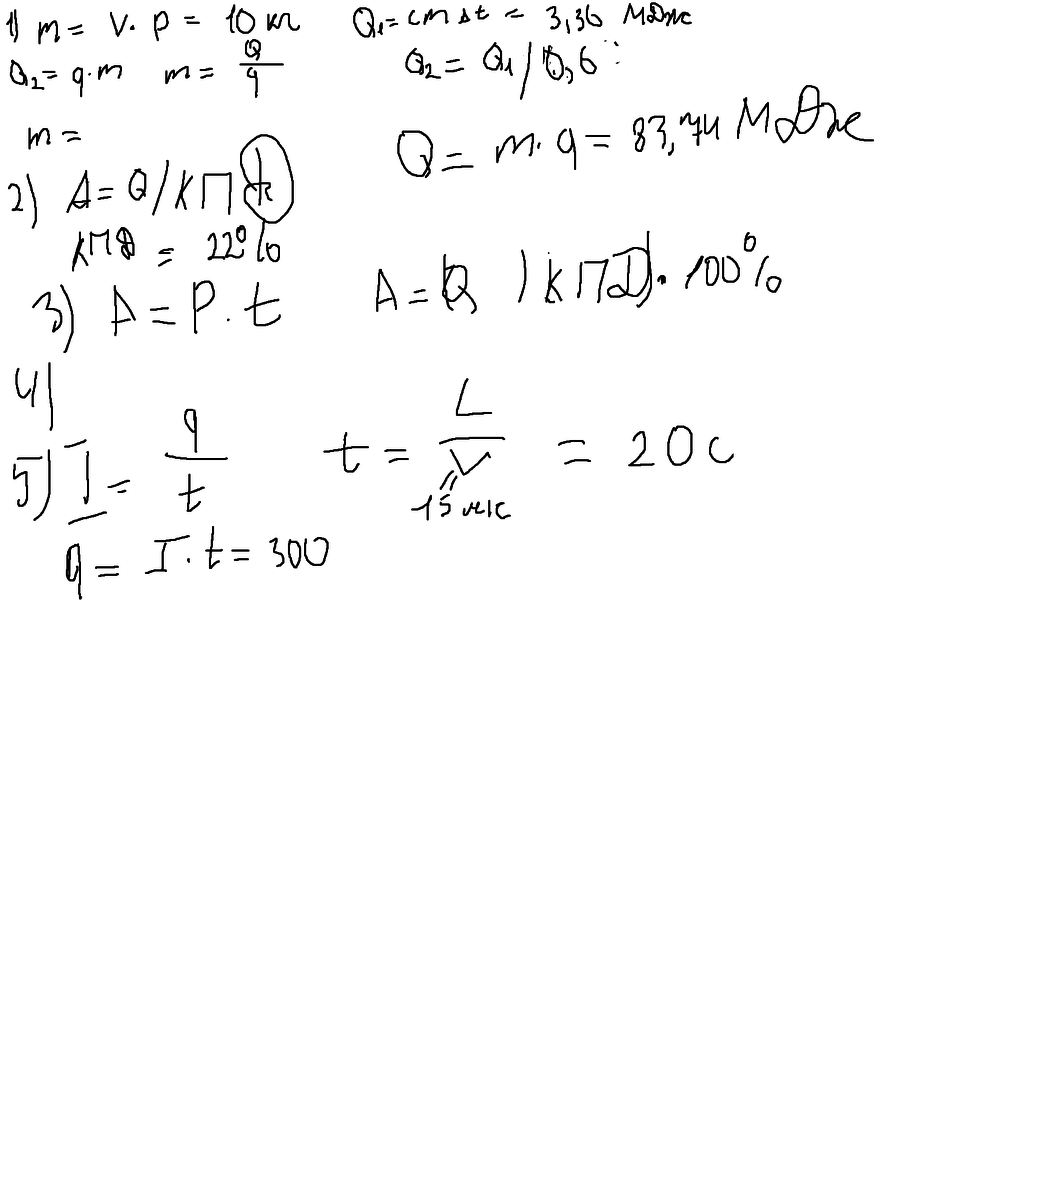 1) m = V · ρ = 10 кг Q₁ = cmΔt = 3,36 МДж
Q₂ = q · m m = Q/q Q₂ = Q₁ / 0,6
m =
Q = m · q = 83,74 МДж
2) A = Q / КПД
КПД = 22%
3) A = P · t A = Q / КПД · 100%
4)
5) I = q/t t = L/V = 20 с
15 м/с
q = I · t = 300